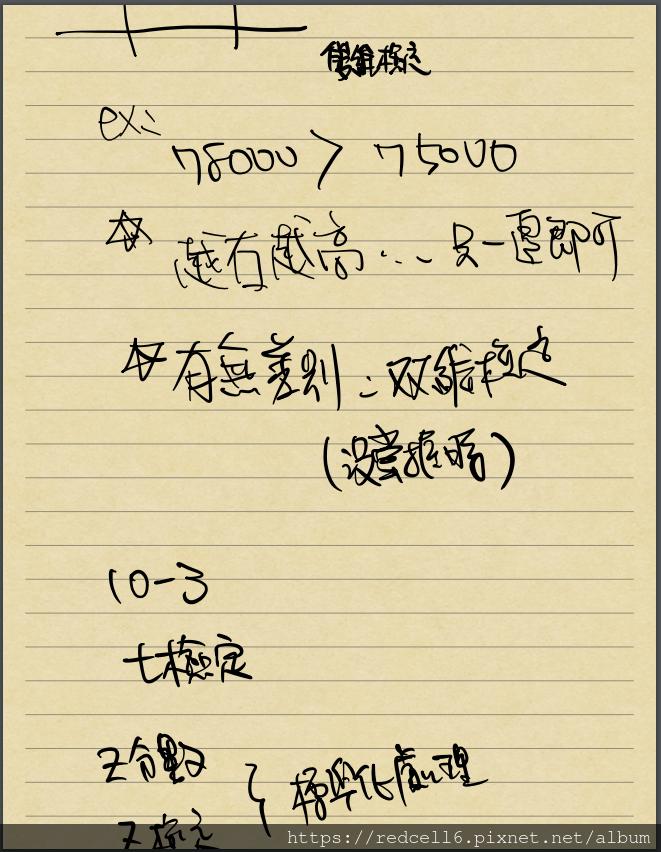 檢定
ex:
78000 > 75000
☆ 越有越高... 只一邊即可
☆ 有無差別:双維檢定
(沒掌握時)
10-3
t檢定
Z分數
標準化處理
Z檢定
https://redcell6.pixnet.net/album